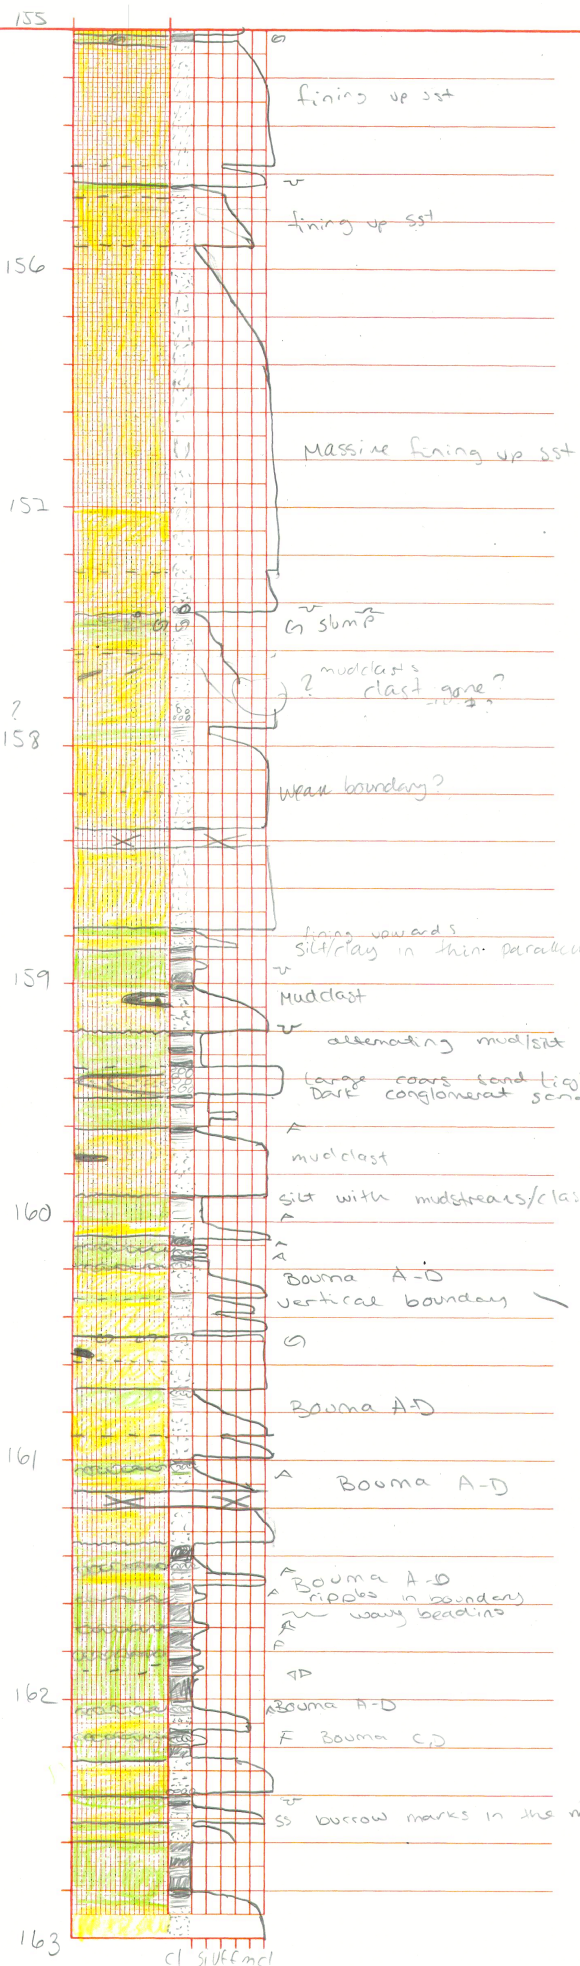 155
fining up sst
fining up sst
156
Massive fining up sst
157
slump
mudclasts
? clast gone?
?
158
weak boundary?
fining upwards
silt/clay in thin parallel
159
Mudclast
alternating mud/silt
Large coars sand
Dark conglomerat sand
mudclast
silt with mudstreaks/clas
160
Bouma A-D
vertical boundary
Bouma A-D
161
Bouma A-D
Bouma A-D
ripples in boundary
wavy beading
162
Bouma A-D
F Bouma C,D
ss burrow marks in the m
163
cl si vf f m c